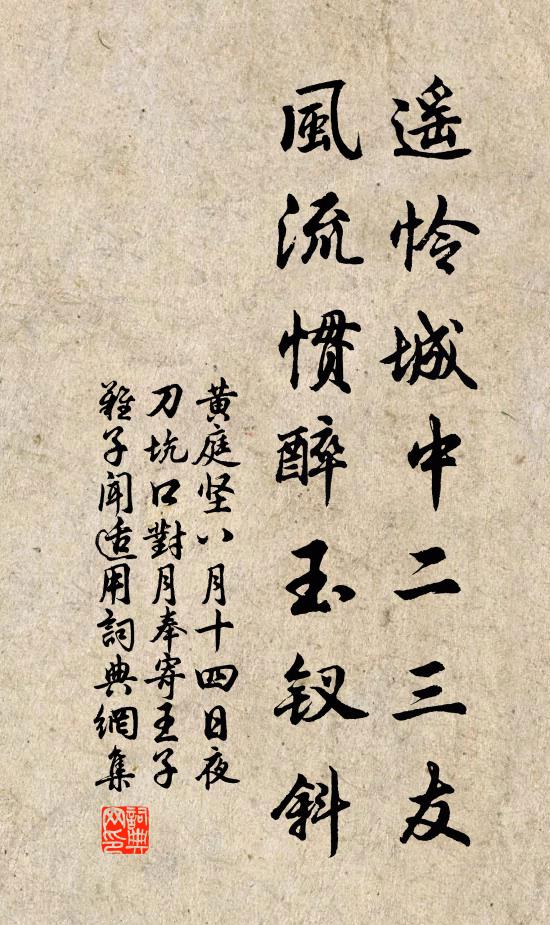 遥怜城中二三友
風流慣醉玉釵斜
黄庭坚八月十四日夜
刀坑口對月奉寄王子
難子聞适用詞典網集
詞典网印